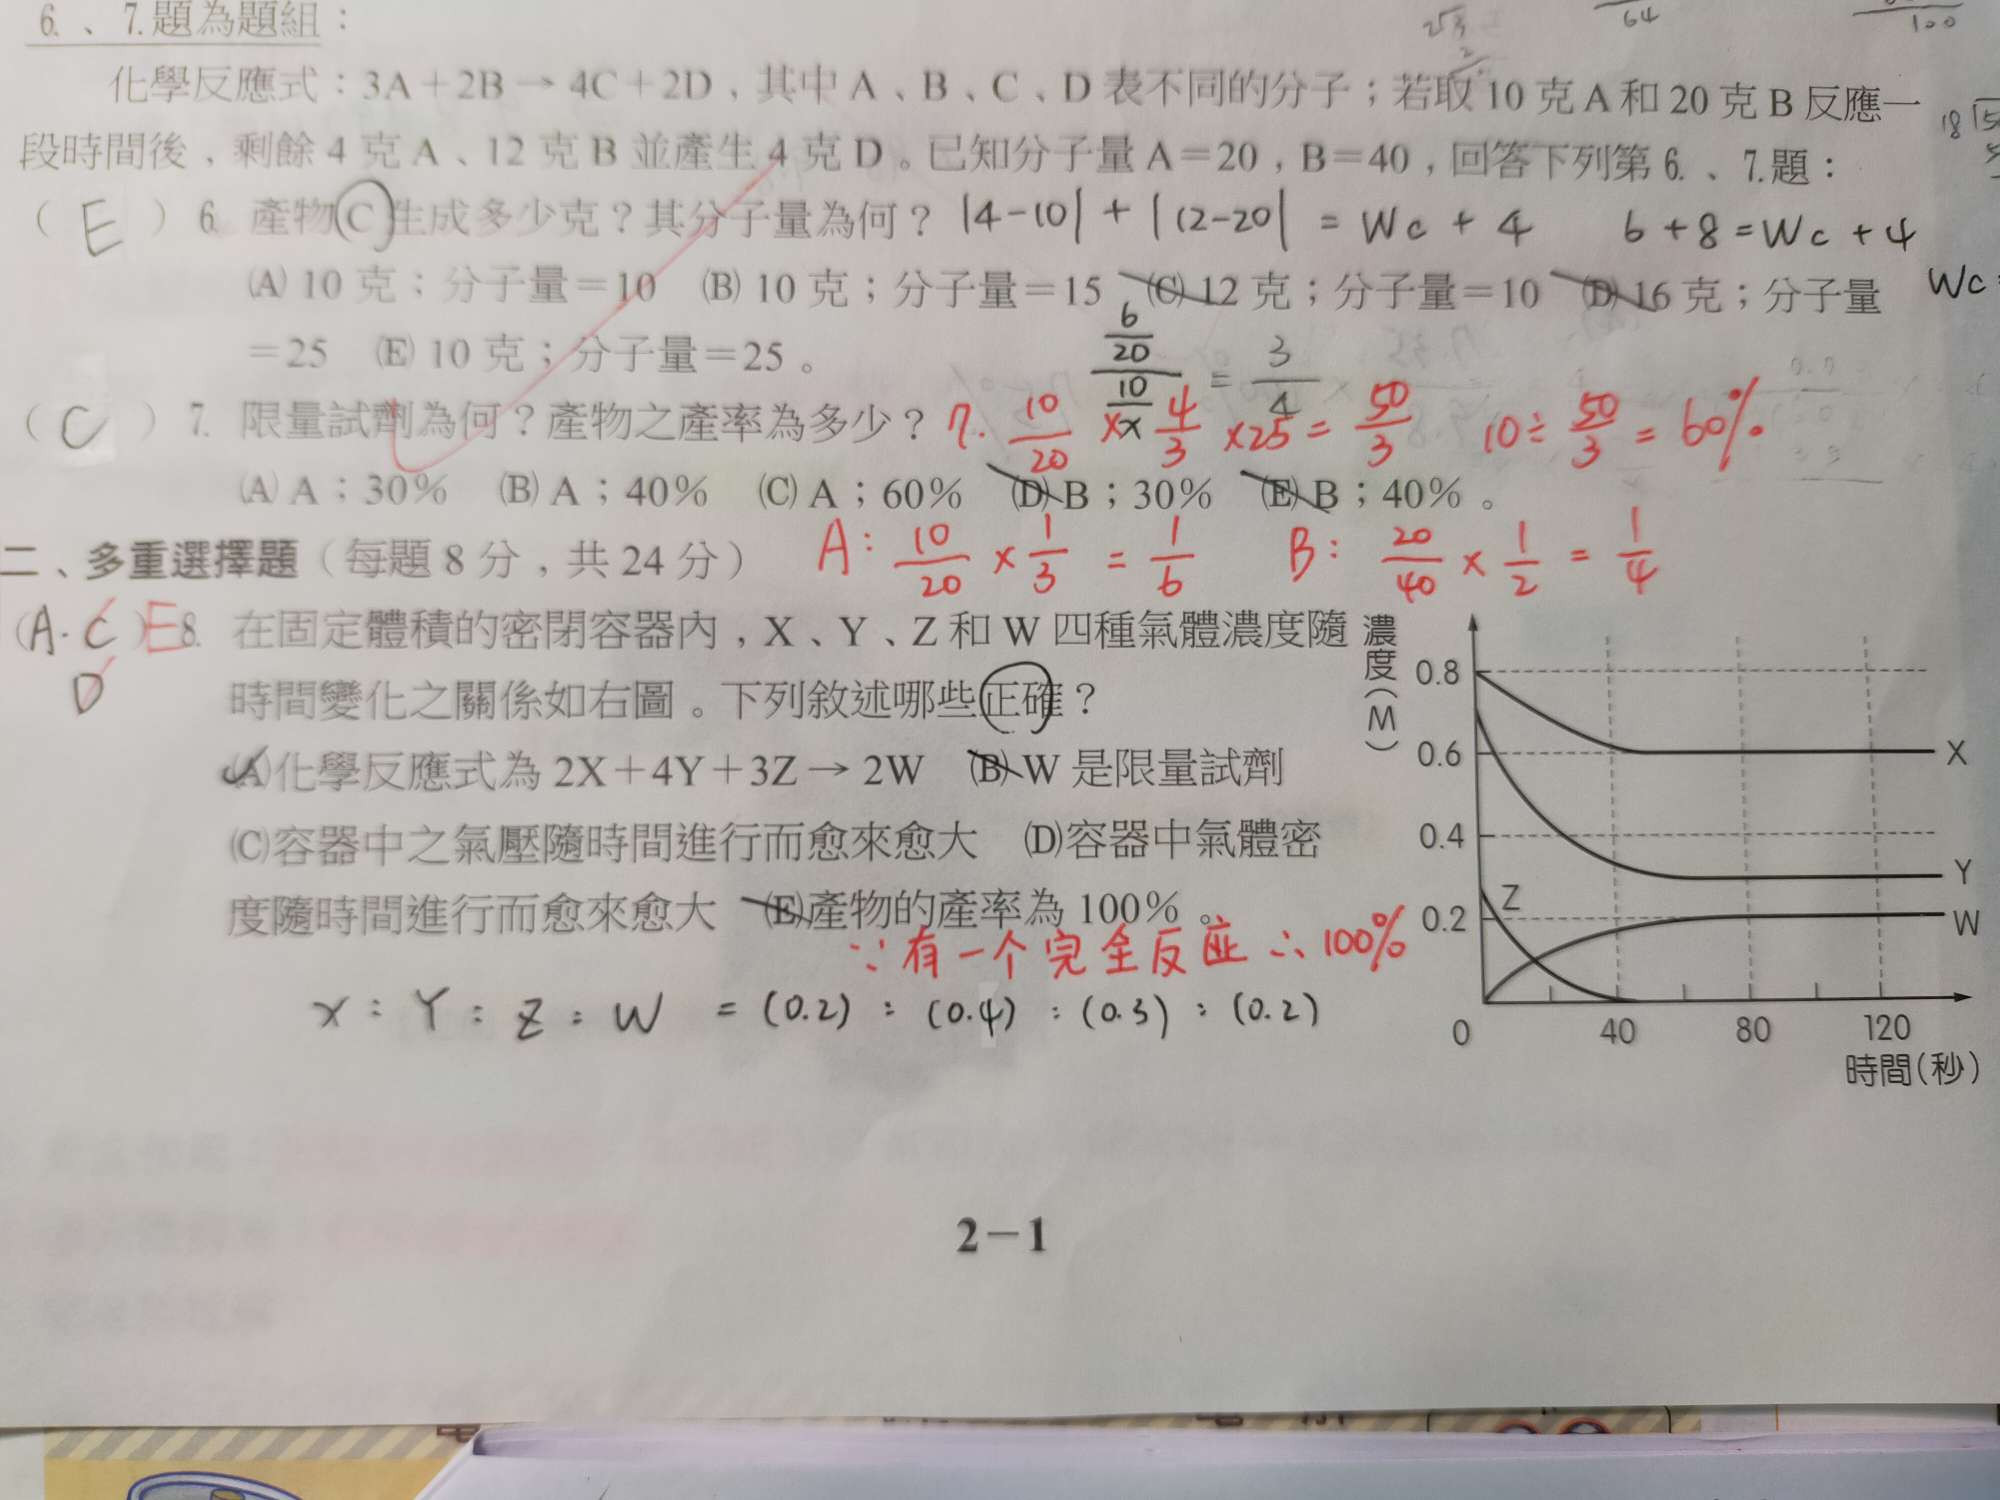 6. 、 7. 題為題組：
化學反應式：3A＋2B→4C＋2D，其中 A、B、C、D 表不同的分子；若取 10 克 A 和 20 克 B 反應一
段時間後，剩餘 4 克 A、12 克 B 並產生 4 克 D。已知分子量 A＝20，B＝40，回答下列第 6. 、7. 題：
（ E ） 6. 產物 C 生成多少克？其分子量為何？ |4-10| + |12-20| = Wc + 4 6+8=Wc+4
(A) 10 克；分子量＝10 (B) 10 克；分子量＝15 (C) 12 克；分子量＝10 (D) 16 克；分子量 Wc
＝25 (E) 10 克；分子量＝25。
6/20 / 10/x = 3/4
（ C ） 7. 限量試劑為何？產物之產率為多少？ 7. 10/20 × 4/3 ×25 = 50/3 10÷50/3 = 60%
(A) A；30% (B) A；40% (C) A；60% (D) B；30% (E) B；40%。
A: 10/20 × 1/3 = 1/6 B: 20/40 × 1/2 = 1/4
二、多重選擇題（每題 8 分，共 24 分）
(A. C D )E 8. 在固定體積的密閉容器內，X、Y、Z 和 W 四種氣體濃度隨
時間變化之關係如右圖。下列敘述哪些正確？
(A)化學反應式為 2X＋4Y＋3Z→2W (B) W 是限量試劑
(C)容器中之氣壓隨時間進行而愈來愈大 (D)容器中氣體密
度隨時間進行而愈來愈大 (E)產物的產率為 100%。
∵有一个完全反应 ∴100%
X : Y : Z : W = (0.2) : (0.4) : (0.3) : (0.2)
濃度(M)
0.8
0.6
0.4
0.2
0 40 80 120
時間(秒)
X
Y
Z
W
2－1